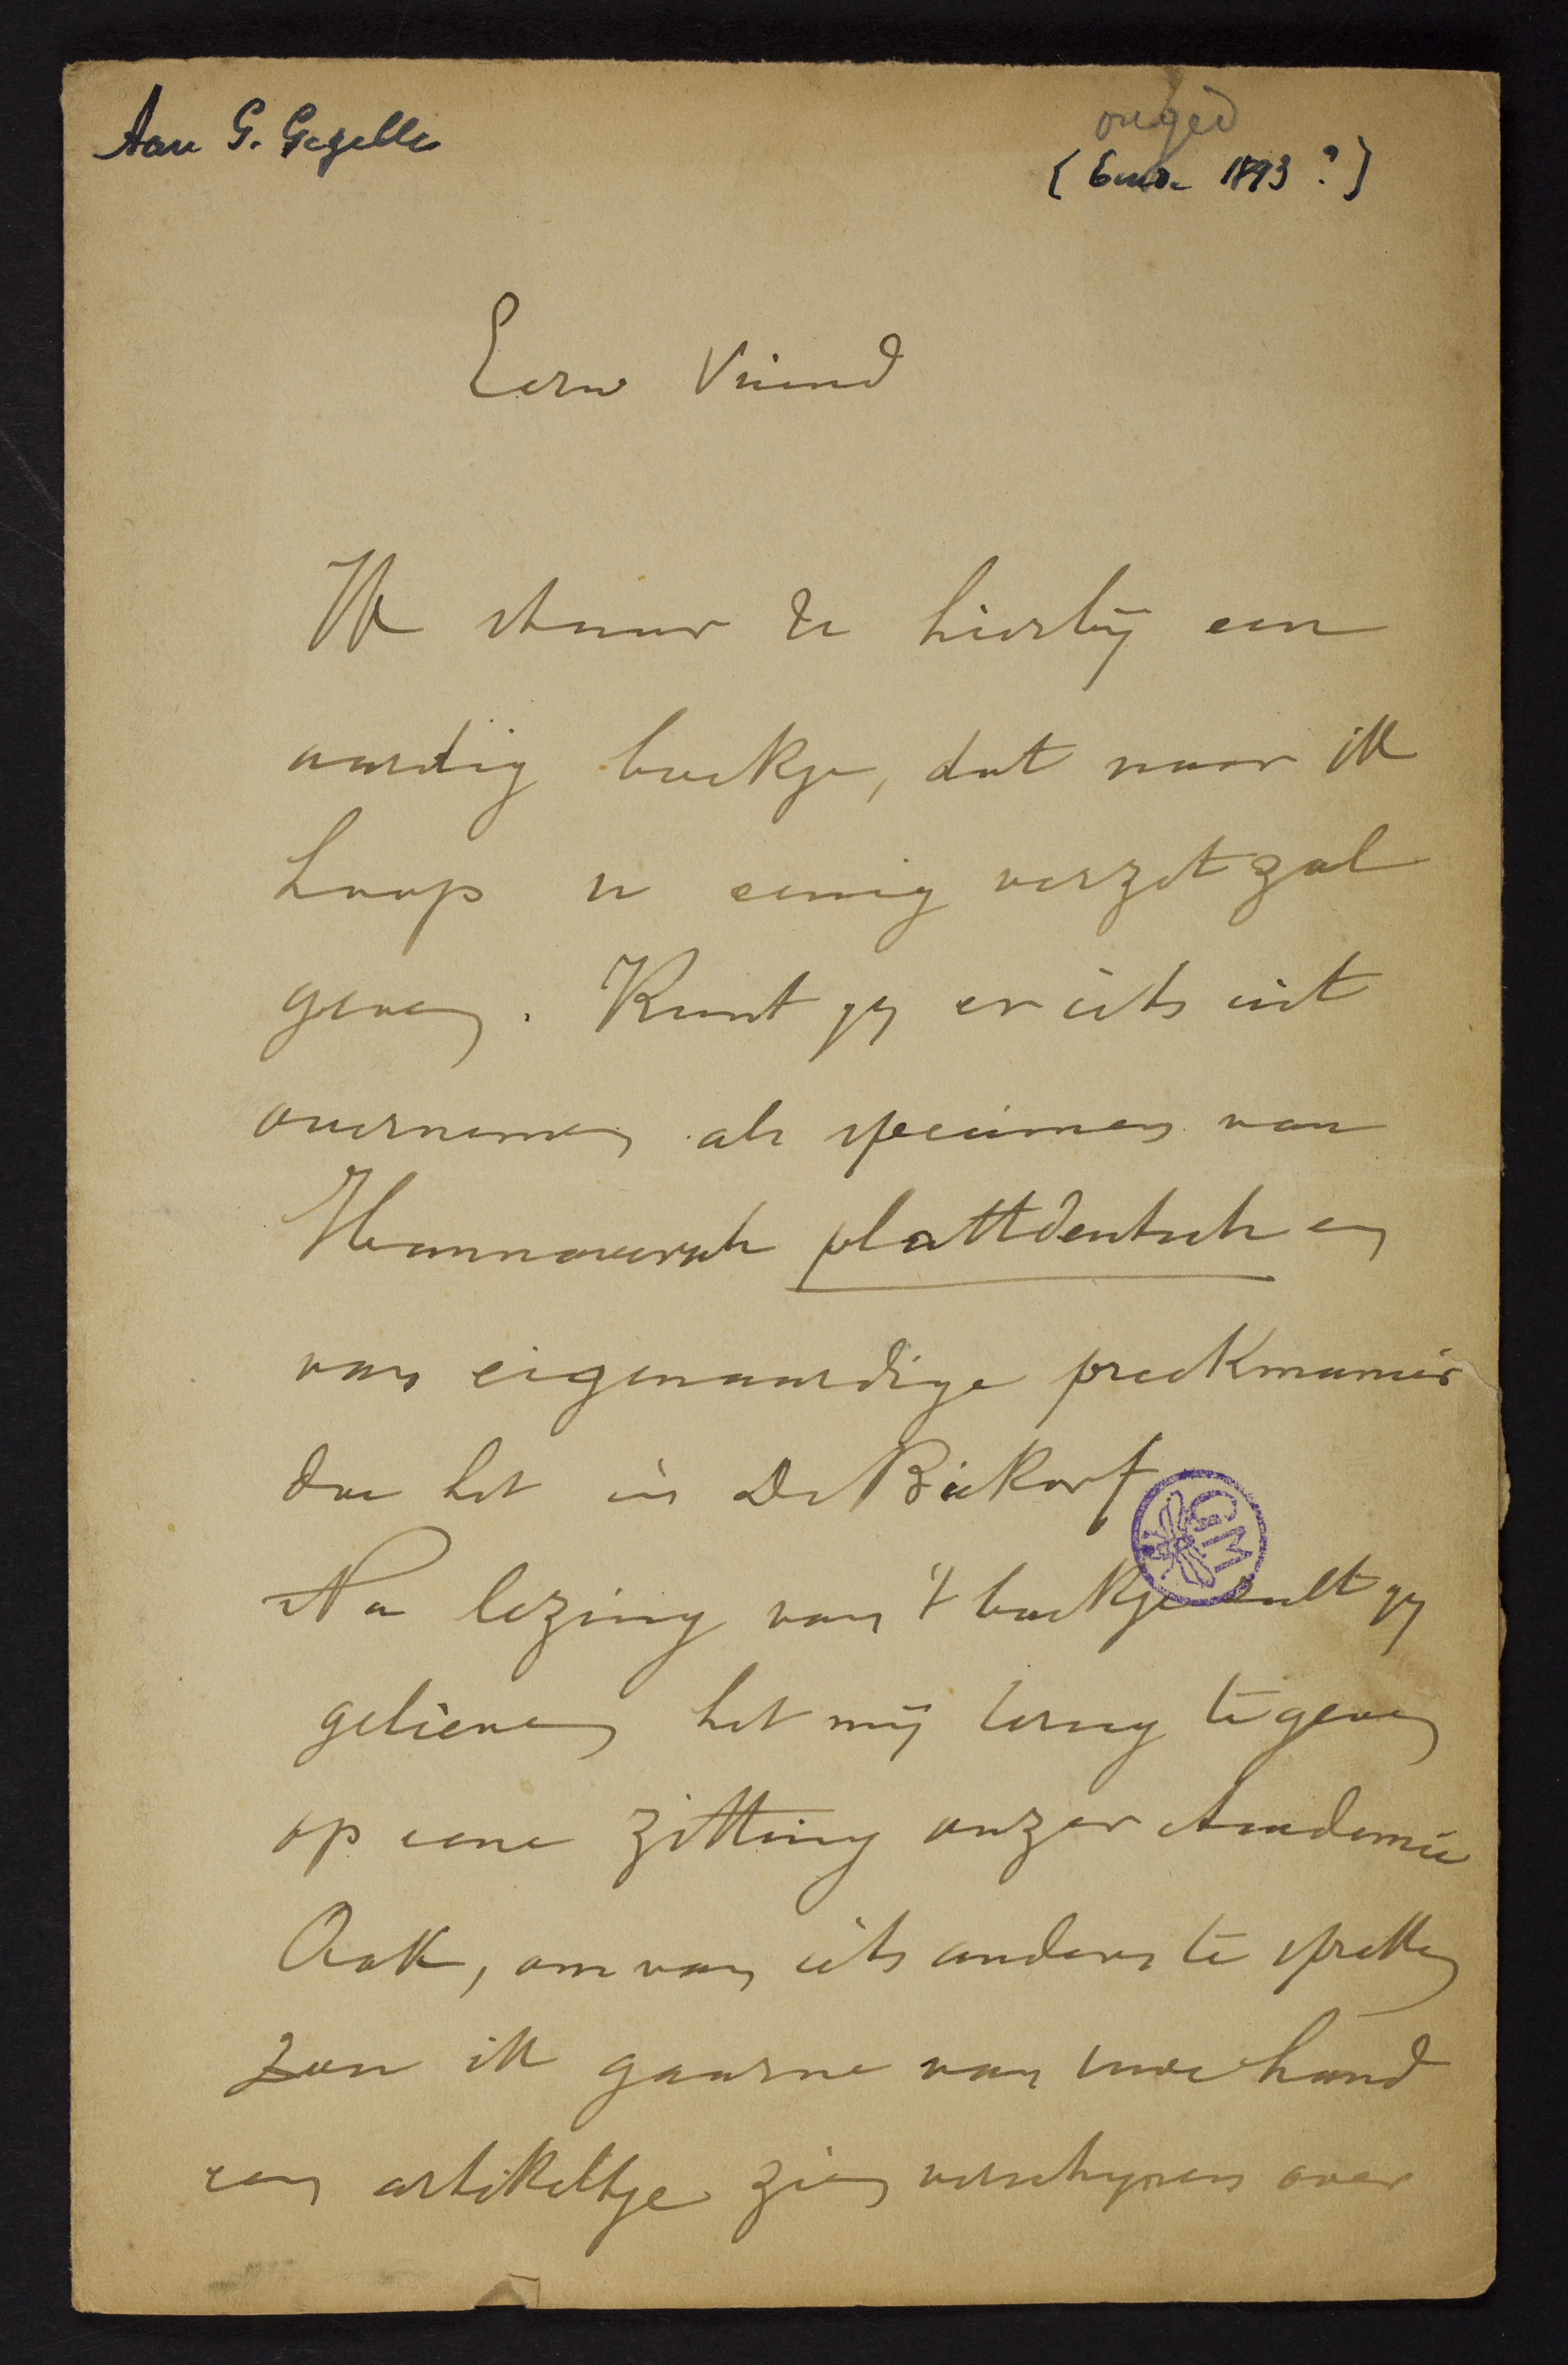 Aan G. Gezelle
onged
[Einde 1893?]
Eerw Vriend
Ik stuur U hierbij een
aardig boekje, dat naar ik
hoop u eenig verzet zal
geven. Kunt gij er iets uit
overnemen als specimen van
Hannoversch plattdeutsch en
van eigenaardige preekmanier
doe het in De Biekorf
Na lezing van 't boekje zult gij
gelieven het mij terug te geven
op eene zitting onzer Academie
Ook, om van iets anders te spreken
zou ik gaarne van uwe hand
een artikeltje zien verschijnen over
GM